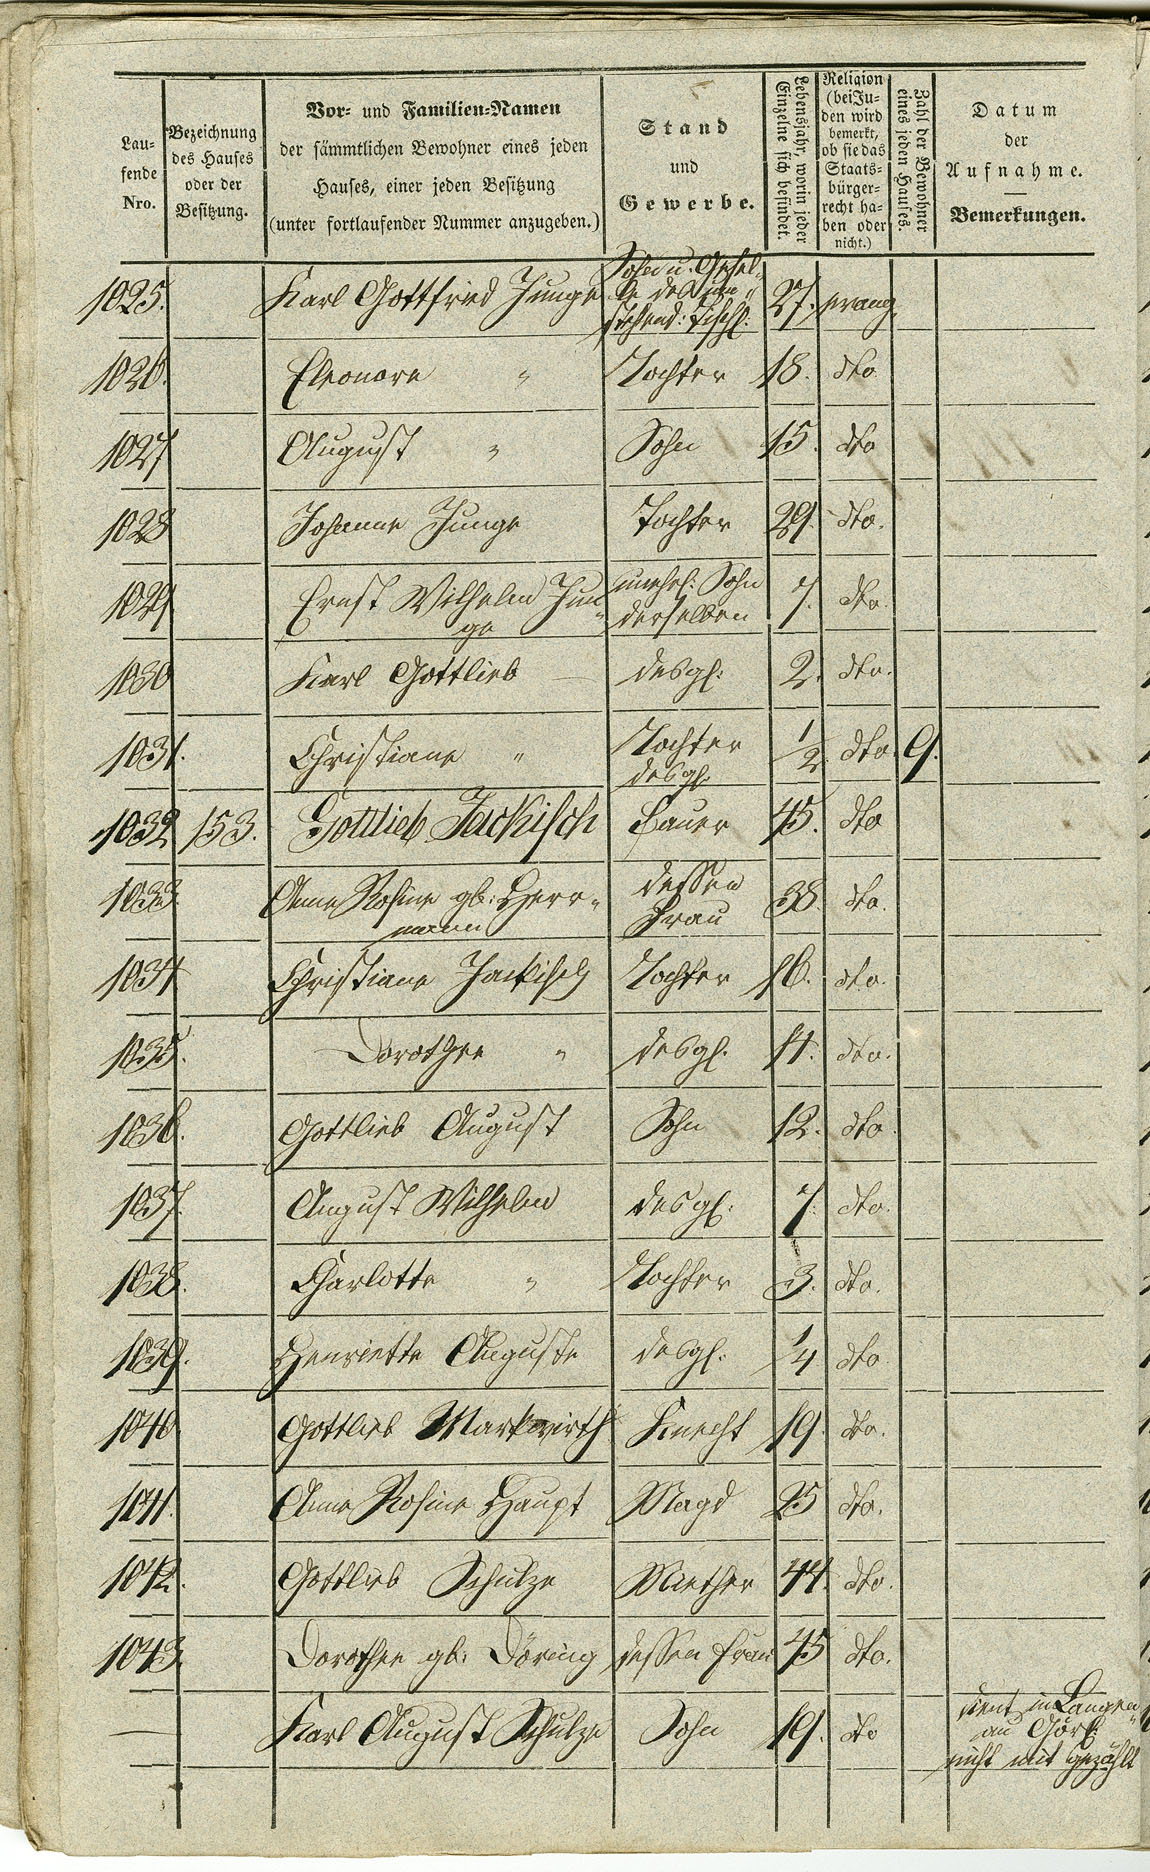 Lau-
fende
Nro.
Bezeichnung
des Hauses
oder der
Besitzung.
Vor- und Familien-Namen
der sämmtlichen Bewohner eines jeden
Hauses, einer jeden Besitzung
(unter fortlaufender Nummer anzugeben.)
Stand
und
Gewerbe.
Lebensjahr, worin jeder
Einzelne sich befindet.
Religion
(bei Ju-
den wird
bemerkt,
ob sie das
Staats-
bürger-
recht ha-
ben oder
nicht.)
Zahl der Bewohner
eines jeden Hauses.
Datum
der
Aufnahme.
Bemerkungen.
Sohn u. Gesel-
1025. Karl Gottfried Junge le des 27. evang.
1026. Eleonore " Tochter 18. dto
1027 August " Sohn 15. dto
1028 Johanne Junge Tochter 29. dto.
1029 Ernst Wilhelm Jun- unehel: Sohn 7. dto.
ge derselben
1030 Karl Gottlieb — desgl: 2. dto.
1031. Christiane " Tochter 1/2 dto 9.
desgl.
1032 153. Gottlieb Jackisch Bauer 45. dto
1033. Anne Rosine gb: Herr- dessen 38. dto.
mann Frau
1034 Christiane Jackisch Tochter 16. dto.
1035. Dorothee " desgl. 14. dto.
1036. Gottlieb August Sohn 12. dto
1037. August Wilhelm desgl: 7. dto.
1038. Charlotte " Tochter 3. dto.
1039. Henriette Auguste desgl: 1/4 dto
1040 Gottlieb Markwirth Knecht 19. dto.
1041. Anne Rosine Haupt Magd 25 dto.
1042. Gottlieb Schulze Miether 44. dto.
1043. Dorothee gb: Döring dessen Frau 45 dto.
— Karl August Schulze Sohn 19. dto dient in Langen-
au Görl:
nicht mit gezählt